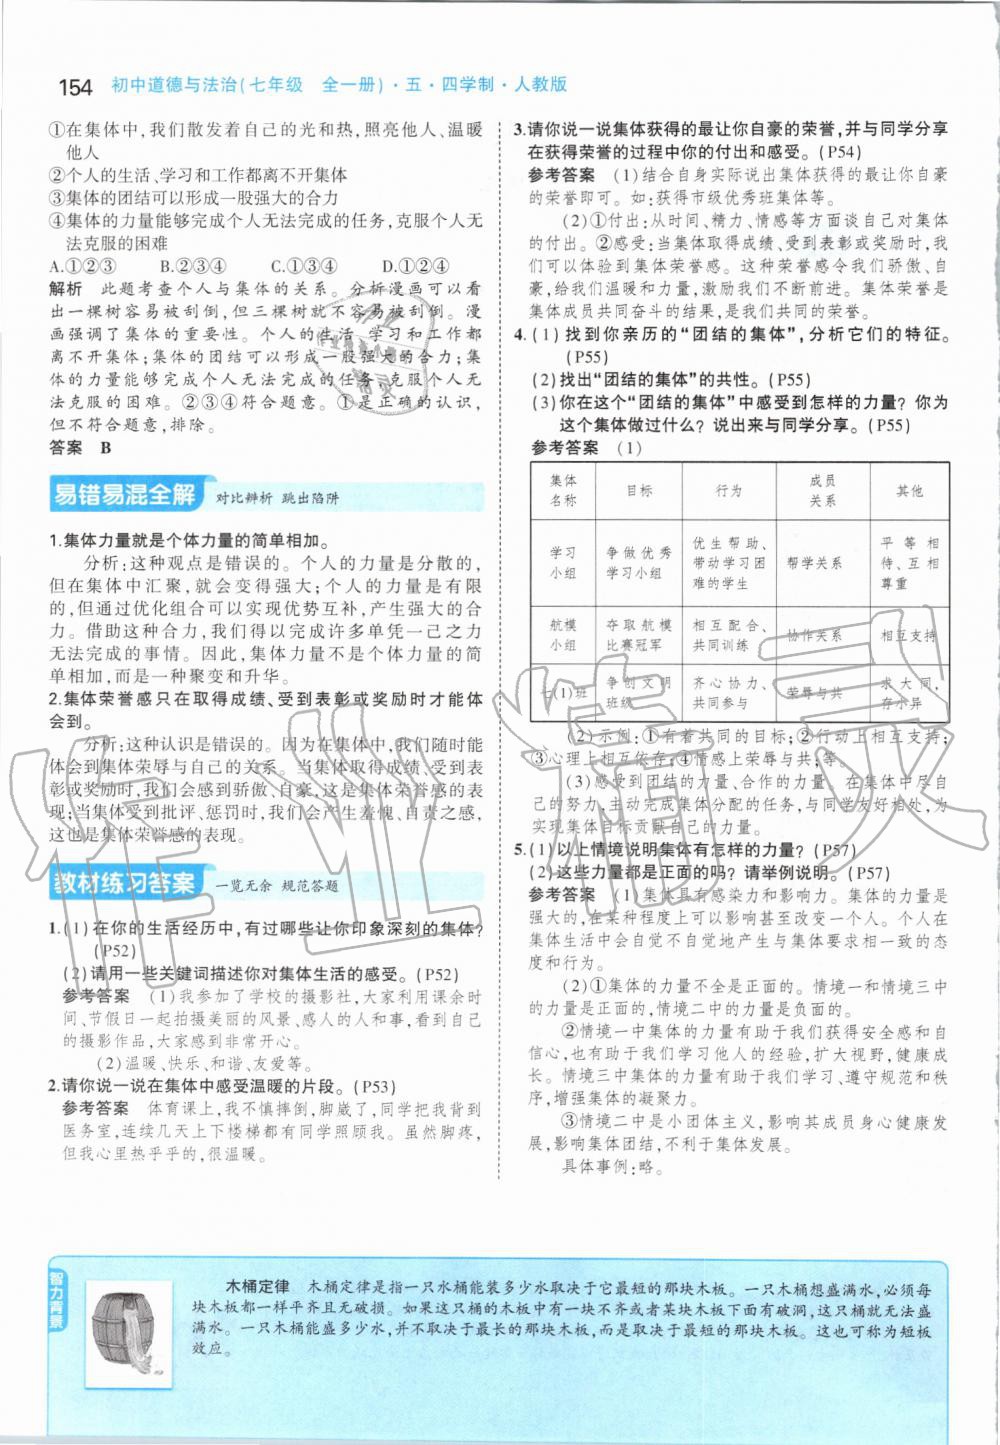 154 初中道德与法治(七年级 全一册)·五·四学制·人教版
①在集体中,我们散发着自己的光和热,照亮他人、温暖
他人
②个人的生活、学习和工作都离不开集体
③集体的团结可以形成一股强大的合力
④集体的力量能够完成个人无法完成的任务,克服个人无
法克服的困难
A.①②③ B.②③④ C.①③④ D.①②④
解析 此题考查个人与集体的关系。分析漫画可以看
出一棵树容易被刮倒,但三棵树就不容易被刮倒。漫
画强调了集体的重要性。个人的生活、学习和工作都
离不开集体;集体的团结可以形成一股强大的合力;集
体的力量能够完成个人无法完成的任务,克服个人无
法克服的困难。②③④符合题意。①是正确的认识,
但不符合题意,排除。
答案 B
易错易混全解 对比辨析 跳出陷阱
1.集体力量就是个体力量的简单相加。
分析:这种观点是错误的。个人的力量是分散的,
但在集体中汇聚,就会变得强大;个人的力量是有限
的,但通过优化组合可以实现优势互补,产生强大的合
力。借助这种合力,我们得以完成许多单凭一己之力
无法完成的事情。因此,集体力量不是个体力量的简
单相加,而是一种聚变和升华。
2.集体荣誉感只在取得成绩、受到表彰或奖励时才能体
会到。
分析:这种认识是错误的。因为在集体中,我们随时能
体会到集体荣辱与自己的关系。当集体取得成绩、受到表
彰或奖励时,我们会感到骄傲、自豪,这是集体荣誉感的表
现;当集体受到批评、惩罚时,我们会产生羞愧、自责之感,
这也是集体荣誉感的表现。
教材练习答案 一览无余 规范答题
1.(1)在你的生活经历中,有过哪些让你印象深刻的集体?
(P52)
(2)请用一些关键词描述你对集体生活的感受。(P52)
参考答案 (1)我参加了学校的摄影社,大家利用课余时
间、节假日一起拍摄美丽的风景、感人的人和事,看到自己
的摄影作品,大家感到非常开心。
(2)温暖、快乐、和谐、友爱等。
2.请你说一说在集体中感受温暖的片段。(P53)
参考答案 体育课上,我不慎摔倒,脚崴了,同学把我背到
医务室,连续几天上下楼梯都有同学照顾我。虽然脚疼,
但我心里热乎乎的,很温暖。
3.请你说一说集体获得的最让你自豪的荣誉,并与同学分享
在获得荣誉的过程中你的付出和感受。(P54)
参考答案 (1)结合自身实际说出集体获得的最让你自豪
的荣誉即可。如:获得市级优秀班集体等。
(2)①付出:从时间、精力、情感等方面谈自己对集体
的付出。②感受:当集体取得成绩、受到表彰或奖励时,我
们可以体验到集体荣誉感。这种荣誉感令我们骄傲、自
豪,给我们温暖和力量,激励我们不断前进。集体荣誉是
集体成员共同奋斗的结果,是我们共同的荣誉。
4.(1)找到你亲历的“团结的集体”,分析它们的特征。
(P55)
(2)找出“团结的集体”的共性。(P55)
(3)你在这个“团结的集体”中感受到怎样的力量?你为
这个集体做过什么?说出来与同学分享。(P55)
参考答案 (1)
集体
名称 目标 行为 成员
关系 其他
学习
小组 争做优秀
学习小组 优生帮助、
带动学习困
难的学生 帮学关系 平等相
待、互相
尊重
航模
小组 夺取航模
比赛冠军 相互配合、
共同训练 协作关系 相互支持
七(1)班 争创文明
班级 齐心协力、
共同参与 荣辱与共 求大同,
存小异
(2)示例:①有着共同的目标;②行动上相互支持;
③心理上相互依存;④情感上荣辱与共;等。
(3)感受到团结的力量、合作的力量。在集体中尽自
己的努力,主动完成集体分配的任务,与同学友好相处,为
实现集体目标贡献自己的力量。
5.(1)以上情境说明集体有怎样的力量?(P57)
(2)这些力量都是正面的吗?请举例说明。(P57)
参考答案 (1)集体具有感染力和影响力。集体的力量是
强大的,在某种程度上可以影响甚至改变一个人。个人在
集体生活中会自觉不自觉地产生与集体要求相一致的态
度和行为。
(2)①集体的力量不全是正面的。情境一和情境三中
的力量是正面的,情境二中的力量是负面的。
②情境一中集体的力量有助于我们获得安全感和自
信心,也有助于我们学习他人的经验,扩大视野,健康成
长。情境三中集体的力量有助于我们学习、遵守规范和秩
序,增强集体的凝聚力。
③情境二中是小团体主义,影响其成员身心健康发
展,影响集体团结,不利于集体发展。
具体事例:略。
智力背景
木桶定律 木桶定律是指一只水桶能装多少水取决于它最短的那块木板。一只木桶想盛满水,必须每
块木板都一样平齐且无破损。如果这只桶的木板中有一块不齐或者某块木板下面有破洞,这只桶就无法盛
满水。一只木桶能盛多少水,并不取决于最长的那块木板,而是取决于最短的那块木板。这也可称为短板
效应。
作业精灵